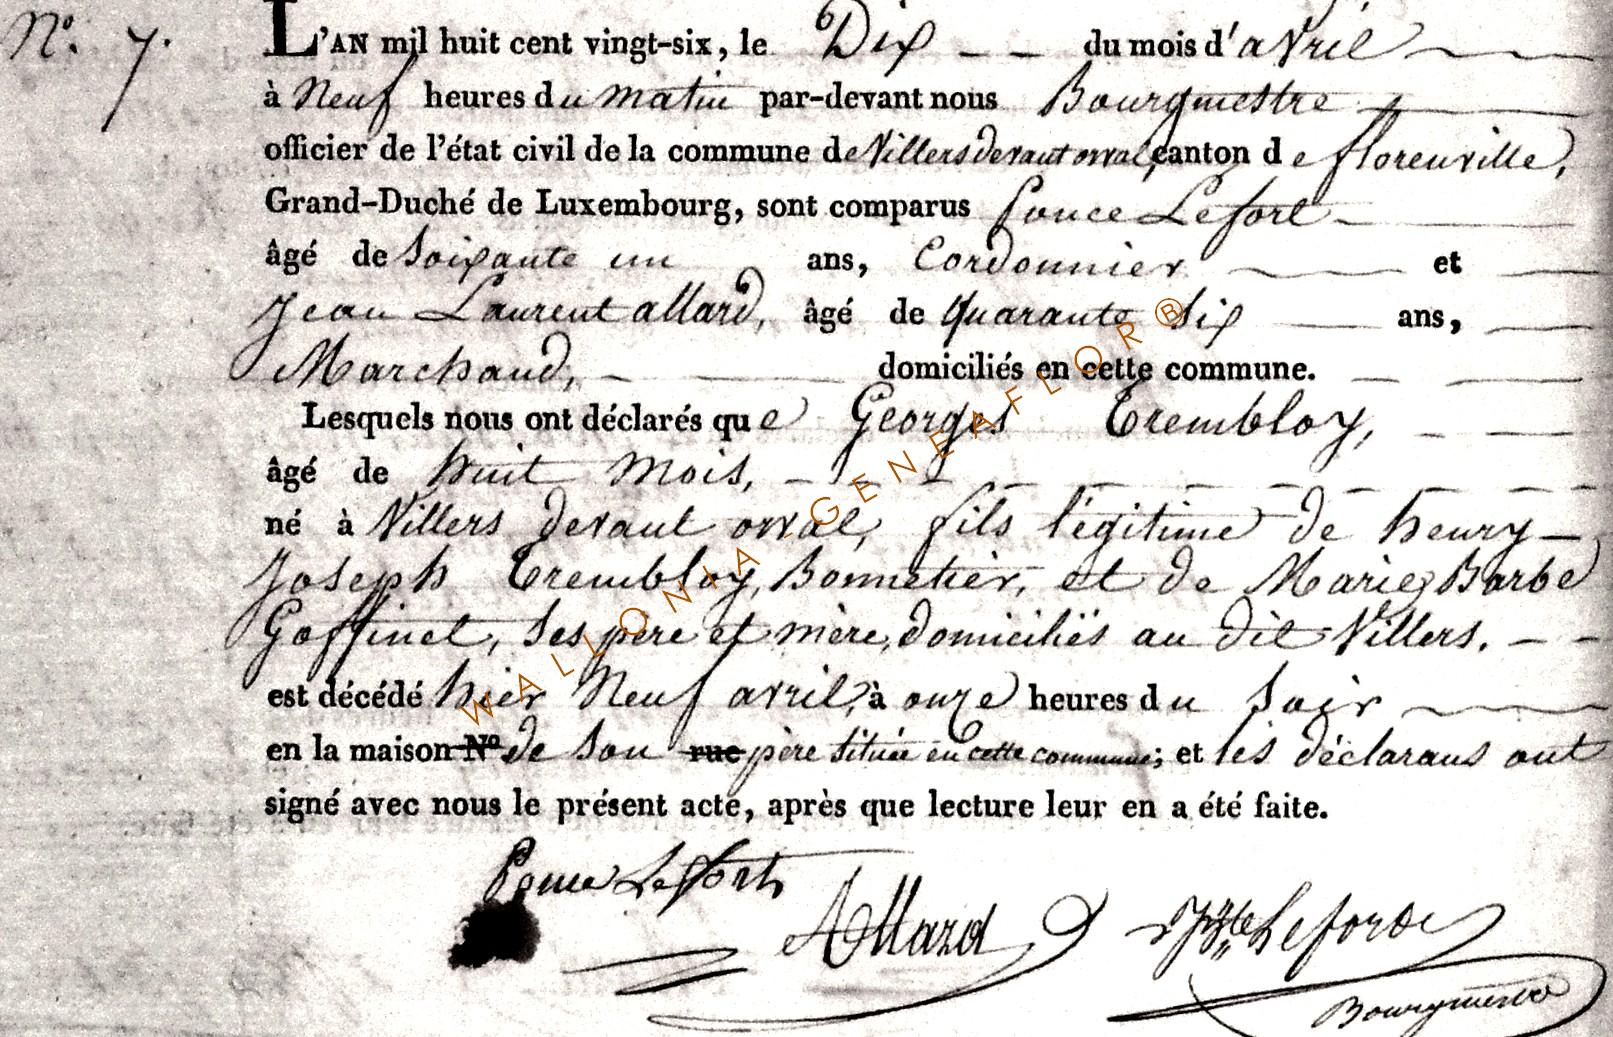 N.° 7.
L'AN mil huit cent vingt-six, le Dix du mois d'avril
à Neuf heures du matin par-devant nous Bourgmestre
officier de l'état civil de la commune de Villers devant orval, canton de florenville,
Grand-Duché de Luxembourg, sont comparus Ponce Lefort
âgé de Soixante un ans, Cordonnier et
Jean Laurent allard, âgé de quarante six ans,
Marchand, domiciliés en cette commune.
Lesquels nous ont déclarés que Georges Trembloy,
âgé de huit mois,
né à Villers devant orval, fils légitime de henry
Joseph Trembloy, Bonnetier, et de Marie Barbe
Goffinet, ses père et mère, domiciliés au dit Villers.
est décédé hier Neuf avril, à onze heures du soir
en la maison N° de son rue père située en cette commune; et les déclarans ont
signé avec nous le présent acte, après que lecture leur en a été faite.
Ponce Lefort
Allard
Lefort
Bourgmestre
WALLONIA - GENEAFLOR®